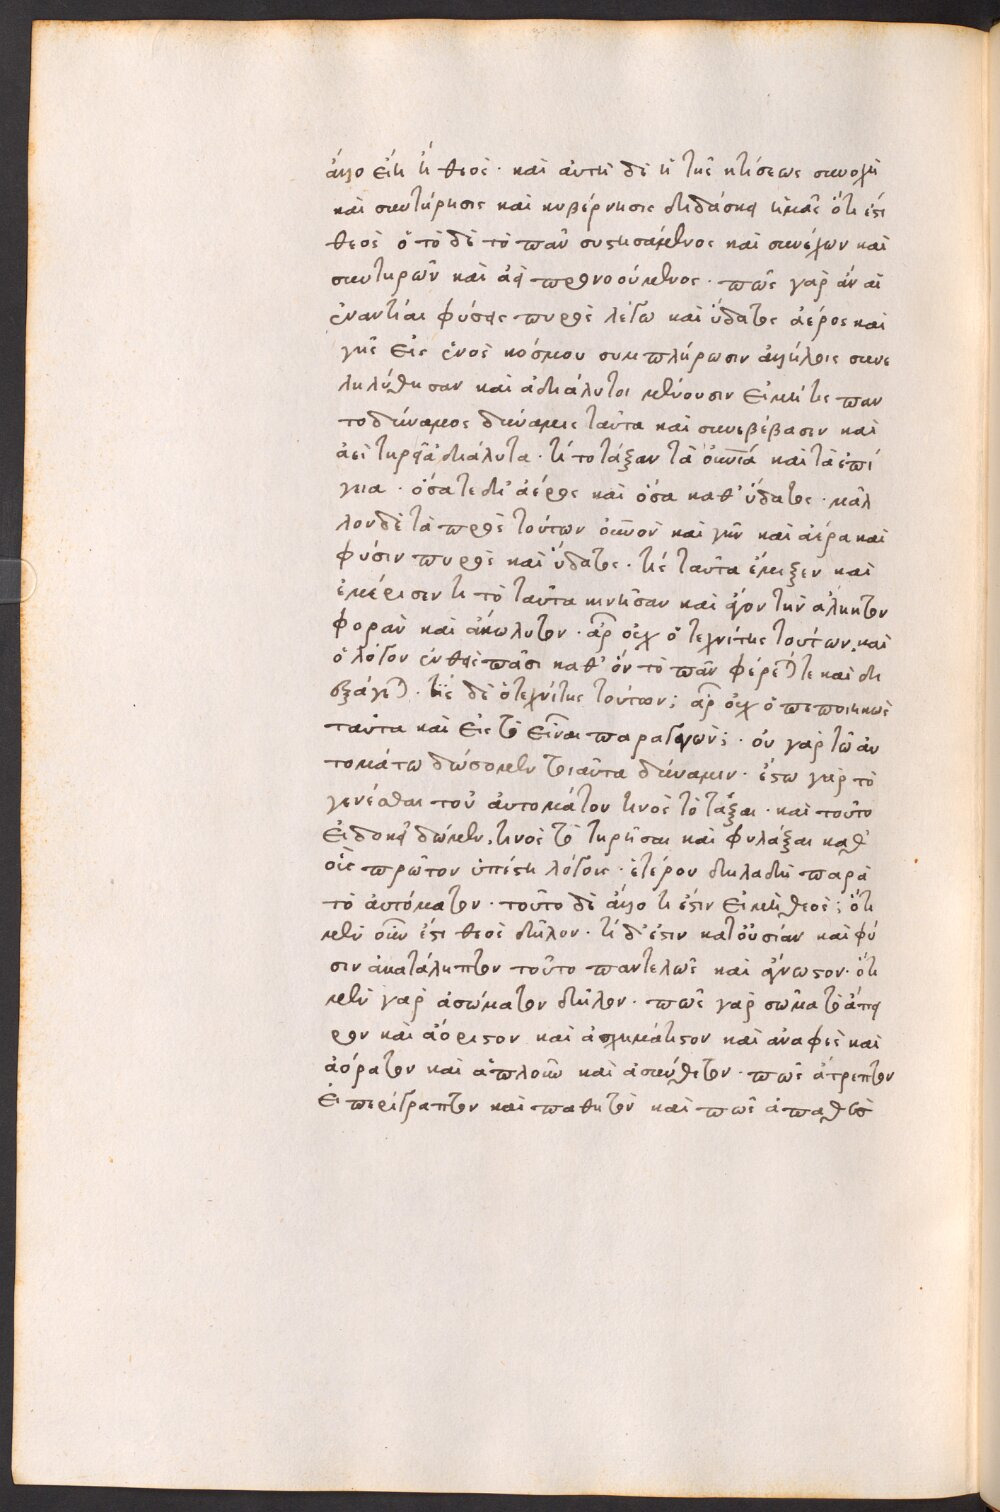 ἄλλο εἴη ἢ θεός · καὶ αὐτὴ δὲ ἡ τῆς κτίσεως συνοχὴ
καὶ συντήρησις καὶ κυβέρνησις διδάσκει ἡμᾶς ὅτι ἐστὶ
θεὸς ὁ τὸ δὲ τὸ πᾶν συστησάμενος καὶ συνέχων καὶ
συντηρῶν καὶ ἀεὶ προνοούμενος · πῶς γὰρ ἂν αἱ
ἐναντίαι φύσεις πυρὸς λέγω καὶ ὕδατος ἀέρος καὶ
γῆς εἰς ἑνὸς κόσμου συμπλήρωσιν ἀλλήλοις συνε
ληλύθησαν καὶ ἀδιάλυτοι μένουσιν εἰ μή τις παν
τοδύναμος δύναμις ταῦτα καὶ συνεβίβασεν καὶ
ἀεὶ τηρεῖ ἀδιάλυτα · τί τὸ τάξαν τὰ οὐνια καὶ τὰ ἐπί
γεια · ὅσα τε δι' ἀέρος καὶ ὅσα καθ' ὕδατος · μᾶλ
λον δὲ τὰ πρὸς τούτων οὐνὸν καὶ γῆν καὶ ἀέρα καὶ
φύσιν πυρὸς καὶ ὕδατος · τίς ταῦτα ἔμιξεν καὶ
ἐμέρισεν τί τὸ ταῦτα κινῆσαν καὶ ἄγον τὴν ἄληκτον
φορὰν καὶ ἀκώλυτον · ἆρ' οὐχ ὁ τεχνίτης τούτων · καὶ
ὁ λόγον ἐνθεὶς πᾶσι καθ' ὃν τὸ πᾶν φέρεταί τε καὶ δι
εξάγεται · τίς δὲ ὁ τεχνίτης τούτων ; ἆρ' οὐχ ὁ πεποιηκὼς
ταῦτα καὶ εἰς τὸ εἶναι παραγαγών ; · οὐ γὰρ τῷ αὐ
τομάτω δώσομεν τοιαῦτα δύναμιν · ἔστω γὰρ τὸ
γενέσθαι τοῦ αὐτομάτου τινὸς τὸ τάξαι · καὶ τοῦτο
εἰ δοκεῖ δῶμεν · τινὸς τὸ τηρῆσαι καὶ φυλάξαι καθ'
οἷς πρῶτον ὑπέστη λόγοις · ἑτέρου δηλαδὴ παρὰ
τὸ αὐτόματον · τοῦτο δὲ ἄλλο τί ἐστιν εἰ μὴ θεός ; ὅτι
μὲν οὖν ἔστι θεὸς δῆλον · τί δ' ἔστιν κατ' οὐσίαν καὶ φύ
σιν ἀκατάληπτον τοῦτο παντελῶς καὶ ἄγνωστον · ὅτι
μὲν γὰρ ἀσώματον δῆλον · πῶς γὰρ σῶμα τὸ ἄπει
ρον καὶ ἀόριστον καὶ ἀσχημάτιστον καὶ ἀναφὲς καὶ
ἀόρατον καὶ ἁπλοῦν καὶ ἀσύνθετον · πῶς ἄτρεπτον
εἰ περίγραπτον καὶ παθητόν καὶ πῶς ἀπαθὲς